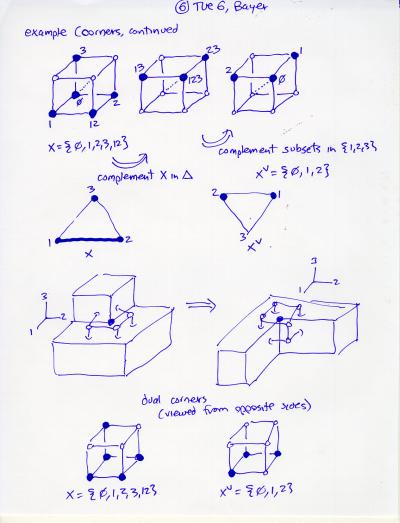 ⑥ TUE 6, Bayer
example (corners, continued
3
∅
1
2
12
13
23
123
2
1
∅
X = {∅, 1, 2, 3, 12}
complement X in Δ
complement subsets in {1,2,3}
X^∨ = {∅, 1, 2}
3
1
2
X
2
1
3
X^∨
3
2
1
⇒
3
2
1
dual corners
(viewed from opposite sides)
X = {∅, 1, 2, 3, 12}
X^∨ = {∅, 1, 2}